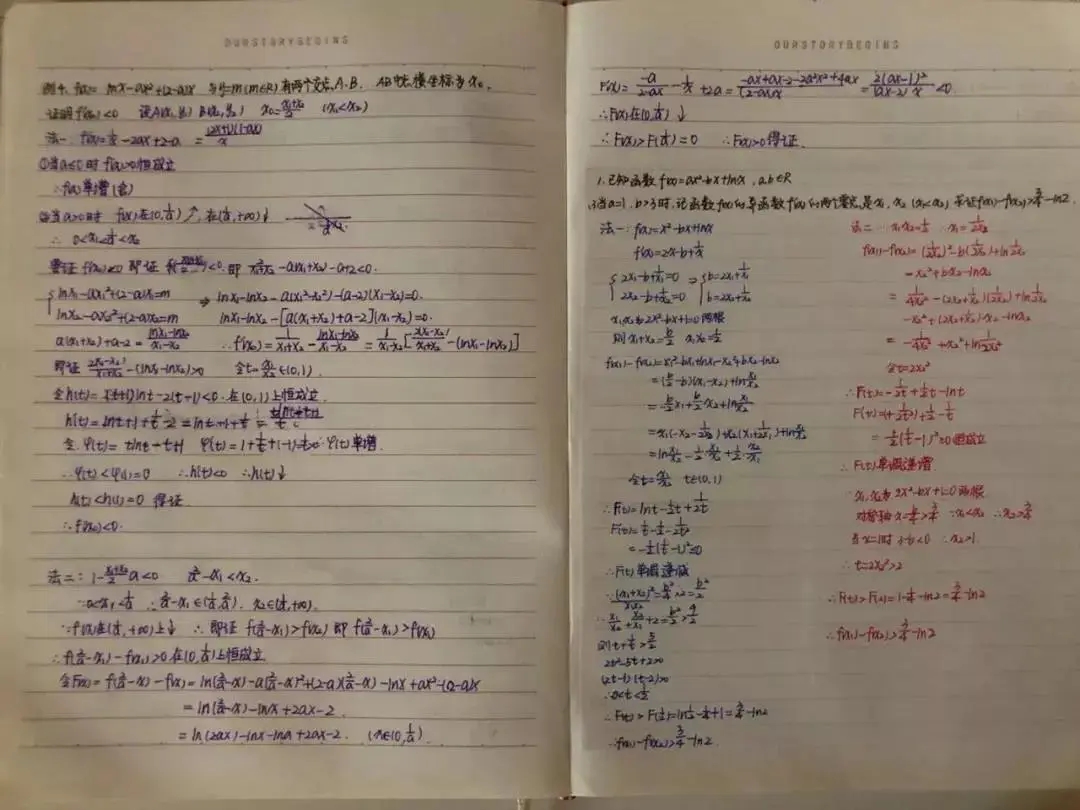 OURSTORYBEGINS
例4. f(x)= lnx-ax²+(2-a)x 与y=m(m∈R)有两个交点A.B. AB中点横坐标为x₀,
证明f'(x₀)<0 设A(x₁,y₁) B(x₂,y₂) x₀=(x₁+x₂)/2 (x₁<x₂)
法一: f'(x)=1/x-2ax+2-a = (2x+1)(1-ax)/x
①当a≤0时 f'(x)>0恒成立
∴f(x)单增(舍)
②当a>0时 f(x)在(0,1/a)↗,在(1/a,+∞)↓
∴ 0<x₁<1/a<x₂
要证f'(x₀)<0 即证 f'((x₁+x₂)/2)<0. 即 2/(x₁+x₂)-a(x₁+x₂)-a+2<0.
{ lnx₁-ax₁²+(2-a)x₁=m ⇒ lnx₁-lnx₂-a(x₁²-x₂²)-(a-2)(x₁-x₂)=0.
lnx₂-ax₂²+(2-a)x₂=m lnx₁-lnx₂-[a(x₁+x₂)+a-2](x₁-x₂)=0.
a(x₁+x₂)+a-2=(lnx₁-lnx₂)/(x₁-x₂) ∴f'(x₀)=2/(x₁+x₂)-(lnx₁-lnx₂)/(x₁-x₂)=1/(x₁-x₂)[2(x₁-x₂)/(x₁+x₂)-(lnx₁-lnx₂)]
即证 2(x₁-x₂)/(x₁+x₂)-(lnx₁-lnx₂)>0 令t=x₁/x₂∈(0,1).
令h(t)=(t+1)lnt-2(t-1)<0.在(0,1)上恒成立
h'(t)=lnt+1+1/t-2=lnt-1+1/t=(tlnt-t+1)/t
令φ(t)=tlnt-t+1 φ(t)单增.
∴φ(t)<φ(1)=0 ∴h'(t)<0 ∴h(t)↓
h(t)<h(1)=0 得证
∴f'(x₀)<0.
法二:1-(x₁+x₂)/2 a<0 2/a-x₁<x₂.
∵0<x₁<1/a ∴2/a-x₁∈(1/a,2/a). x₂∈(1/a,+∞).
∵f(x)在(1/a,+∞)上↓ ∴即证 f(2/a-x₁)>f(x₂) 即f(2/a-x₁)>f(x₁)
∴f(2/a-x₁)-f(x₁)>0 在(0,1/a)上恒成立
令F(x)=f(2/a-x)-f(x)=ln(2/a-x)-a(2/a-x)²+(2-a)(2/a-x)-lnx+ax²-(2-a)x
=ln(2/a-x)-lnx+2ax-2.
=ln(2-ax)-lnx-lna+2ax-2. (x∈(0,1/a)).
OURSTORYBEGINS
F'(x)=-a/(2-ax)-1/x+2a=(-ax+ax-2-2a²x²+4ax)/((2-ax)x)=2(ax-1)²/((ax-2)x)<0.
∴F(x)在(0,1/a)↓
∴F(x)>F(1/a)=0 ∴F(x)>0得证.
1.已知函数f(x)=ax²-bx+lnx, a.b∈R
(3)当a=1,b>3时,记函数f(x)的导函数f'(x)的两个零点是x₁,x₂ (x₁<x₂) 求证f(x₁)-f(x₂)>3/4-ln2.
法一:f(x)=x²-bx+lnx
f'(x)=2x-b+1/x
{ 2x₁-b+1/x₁=0 ⇒ { b=2x₁+1/x₁
2x₂-b+1/x₂=0 b=2x₂+1/x₂
x₁,x₂为2x²-bx+1=0两根
则x₁+x₂=b/2 x₁x₂=1/2
f(x₁)-f(x₂)=x₁²-bx₁+lnx₁-x₂²+bx₂-lnx₂
=(b/2-b)(x₁-x₂)+ln x₁/x₂
=-b/2x₁+b/2x₂+ln x₁/x₂
=ln x₁/x₂-1/2·x₁/x₂+1/2·x₂/x₁
令t=x₁/x₂ t∈(0,1)
∴F(t)=lnt-1/2t+1/2t
F'(t)=1/t-1/2-1/2t²
=-1/2(1/t-1)²≤0
∴F(t)单调递减
∵(x₁+x₂)²/x₁x₂=b²/4×2=b²/2
∴x₁/x₂+x₂/x₁+2=b²/2>9/2
则t+1/t>5/2
2t²-5t+2>0
(2t-1)(t-2)>0
∴0<t<1/2
∴F(t)>F(1/2)=ln1/2-1/4+1=3/4-ln2
∴f(x₁)-f(x₂)>3/4-ln2.
法二: x₁x₂=1/2 ∴x₁=1/2x₂
f(x₁)-f(x₂)=(1/2x₂)²-b(1/2x₂)+ln1/2x₂
-x₂²+bx₂-lnx₂
=1/4x₂²-(2x₂+1/x₂)(1/2x₂)+ln1/2x₂
-x₂²+(2x₂+1/x₂)·x₂-lnx₂
=-1/4x₂²+x₂²+ln1/2x₂²
令t=2x₂²
∴F(t)=-1/2t+1/2t-lnt
F'(t)=1/2t²+1/2-1/t
=1/2(1/t-1)²≥0恒成立
∴F(t)单调递增
∵x₁,x₂为2x²-bx+1=0两根
对称轴x=b/4>3/4 ∵x₁<x₂ ∴x₂>3/4
当x=1时 3-b<0 ∴x₂>1.
∴t=2x₂²>2
∴F(t)>F(2)=1-1/4-ln2=3/4-ln2
∴f(x₁)-f(x₂)>3/4-ln2